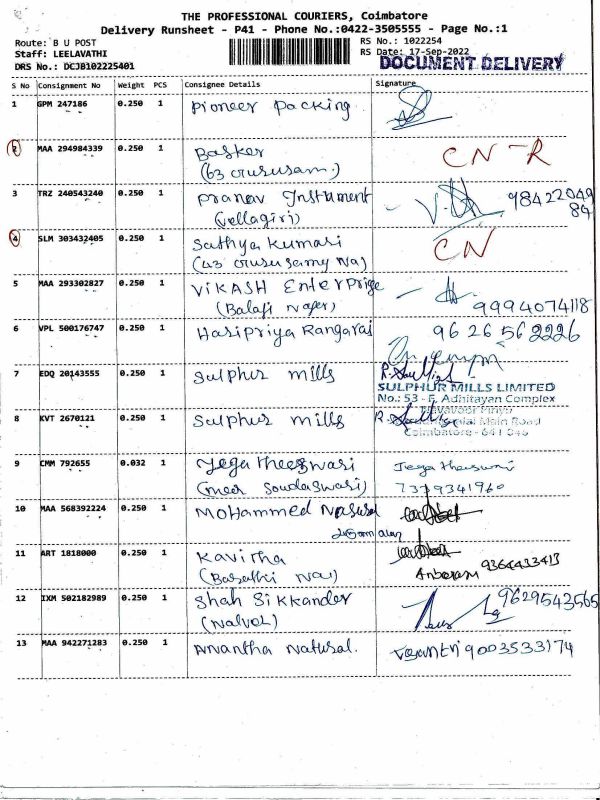 THE PROFESSIONAL COURIERS, Coimbatore
Delivery Runsheet - P41 - Phone No.:0422-3505555 - Page No.:1
Route: B U POST
RS No.: 1022254
Staff: LEELAVATHI
RS Date: 17-Sep-2022
DRS No.: DCJB102225401
DOCUMENT DELIVERY
S No Consignment No Weight PCS Consignee Details Signature
1 GPM 247186 0.250 1 Pioneer Packing
2 MAA 294984339 0.250 1 Basker CN-R
3 TRZ 240543240 0.250 1 Pranav Instument 98422049
(vellagiri) 84
4 SLM 303432405 0.250 1 Sathya Kumari CN
5 MAA 293302827 0.250 1 VIKASH Enterprise
(Balaji Nager) 9994074118
6 VPL 500176747 0.250 1 Haripriya Rangaraj 96 26 56 2226
7 EDQ 20143555 0.250 1 Sulphur mills
SULPHUR MILLS LIMITED
No.: 53 - F, Adhitayan Complex
8 KVT 2670121 0.250 1 Sulphur mills
Main Road
Coimbatore - 641 046
9 CMM 792655 0.032 1 Jegatheeswari
(Meer Soudaswari) 7379341960
10 MAA 568392224 0.250 1 Mohammed
11 ART 1818000 0.250 1 Kavitha
9364433413
12 IXM 502182989 0.250 1 Shah Sikkander 9629543565
(Nalvol)
13 MAA 942271283 0.250 1 Anantha Natural. 9003533174